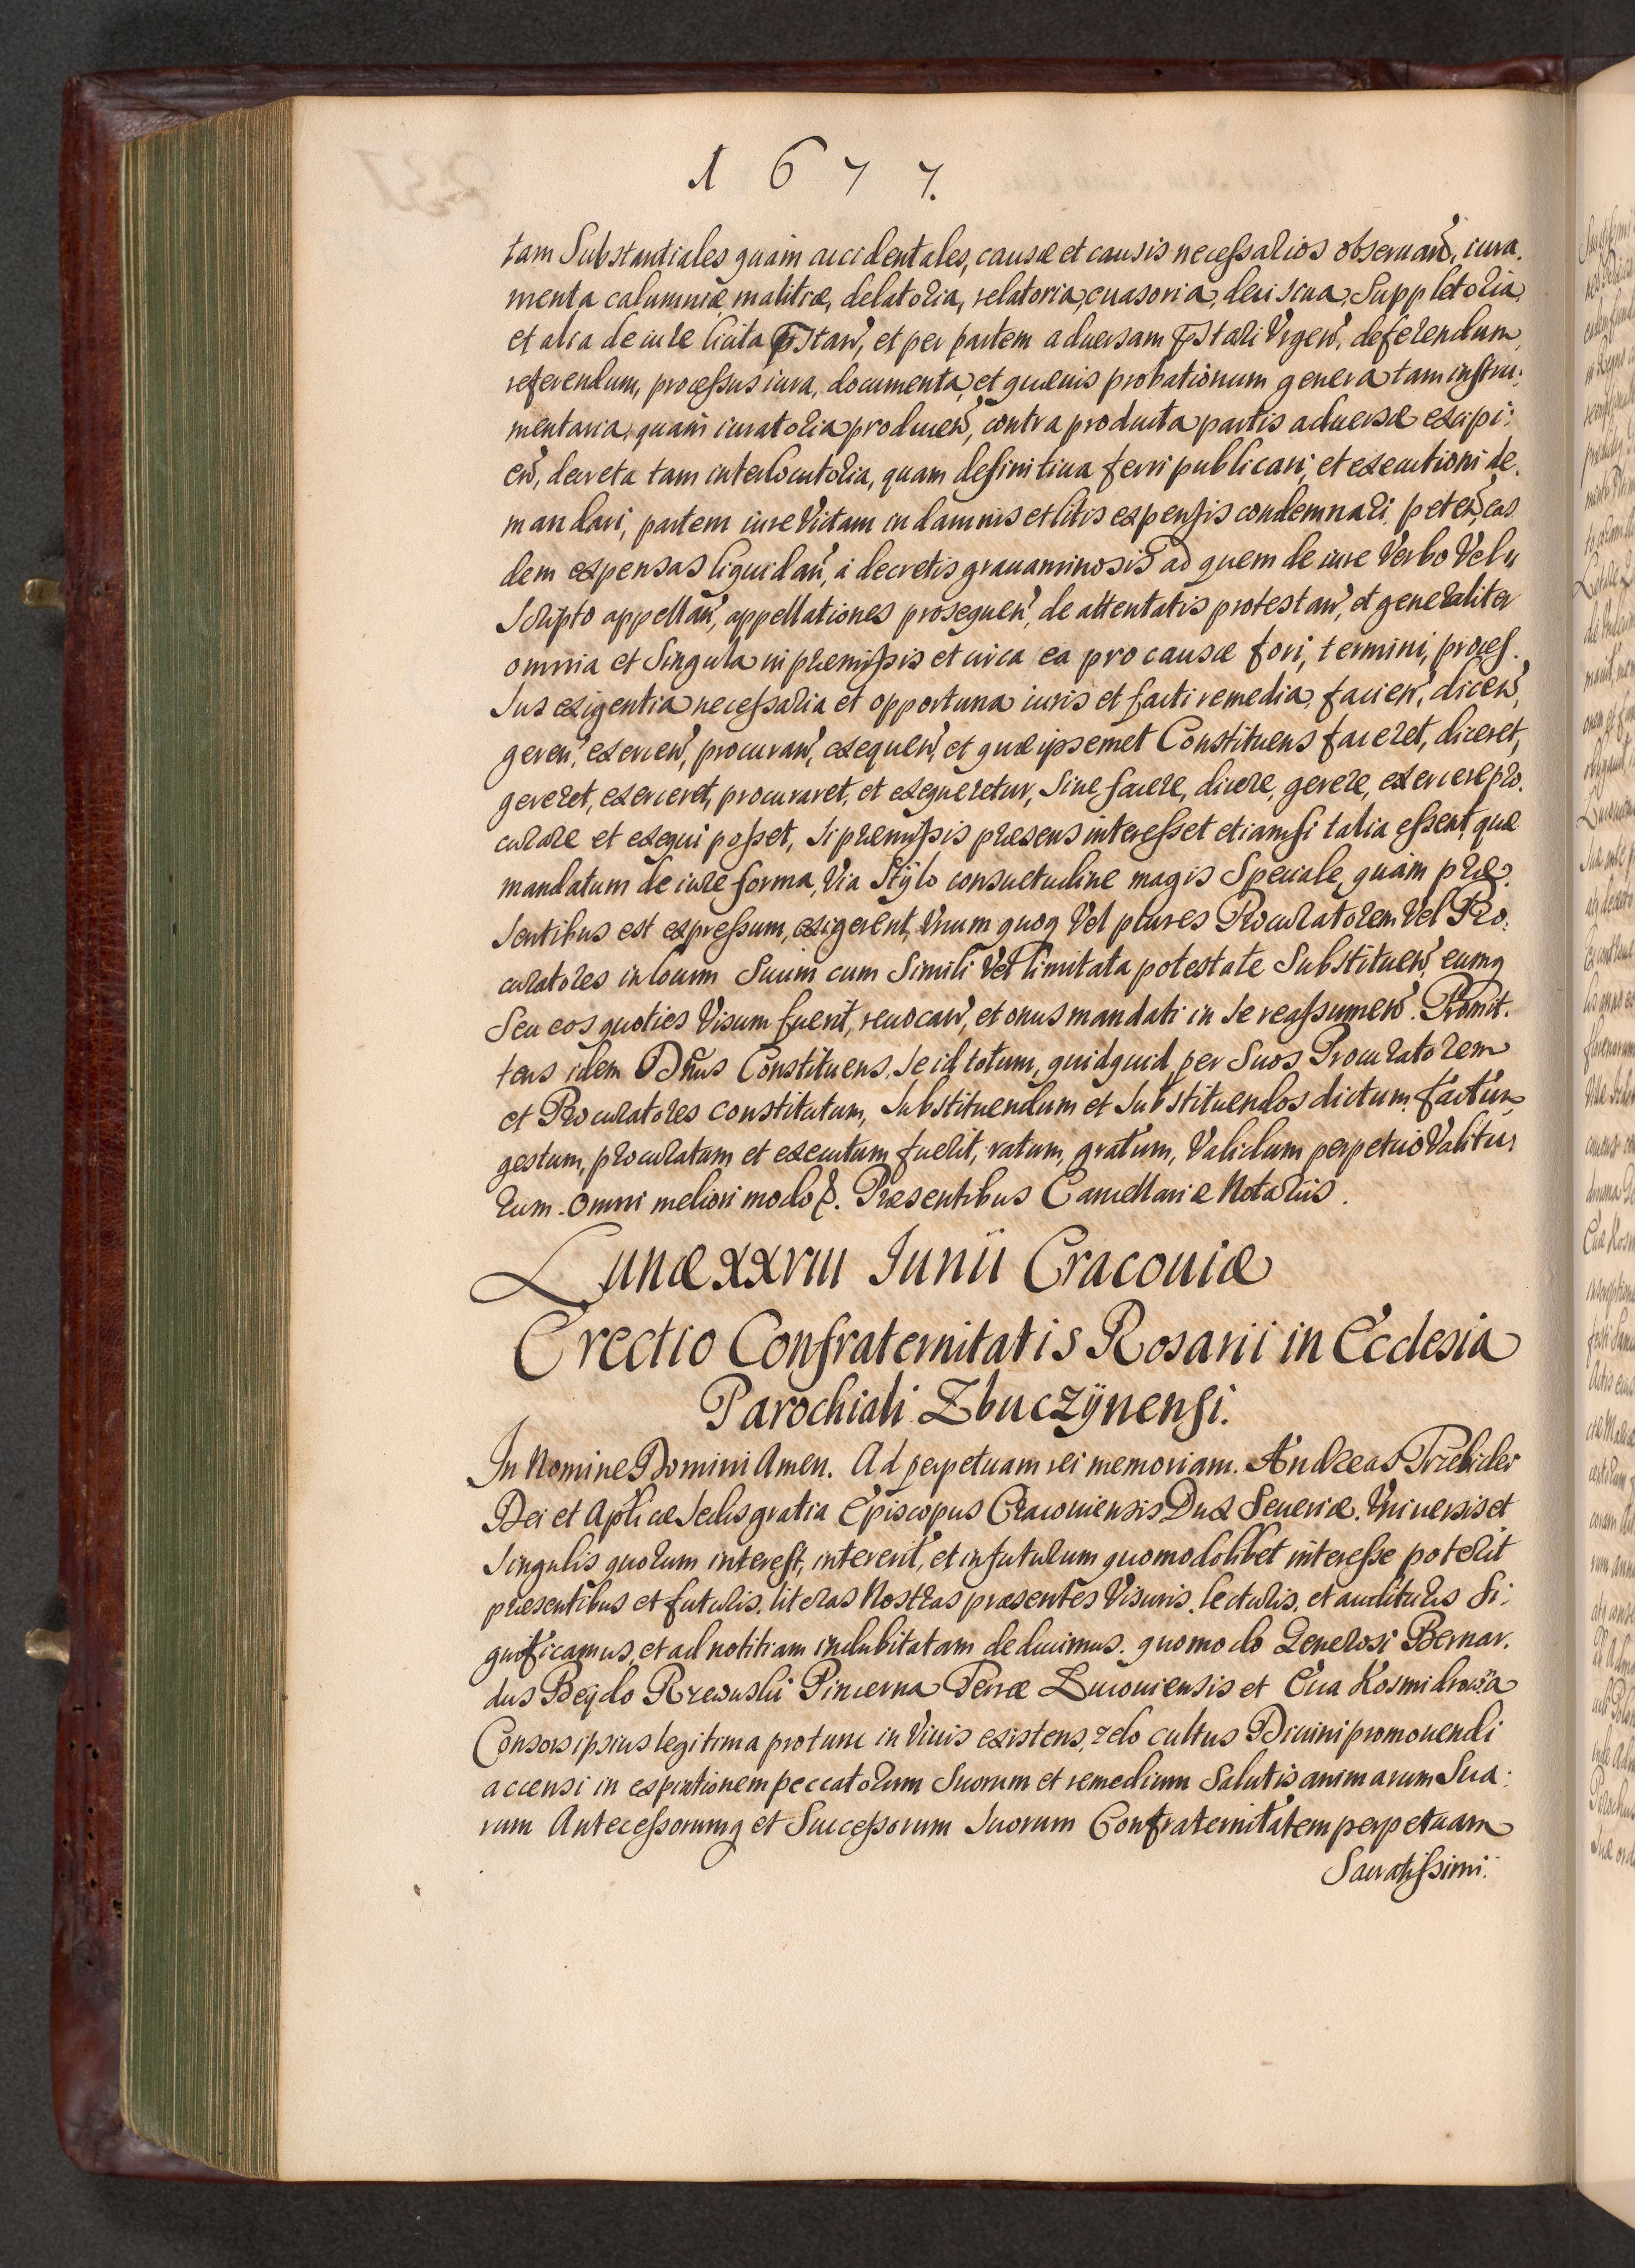 1677.
tam Substantiales quàm accidentales, causæ et causis necessarios obseruan̄, iura.
menta calumniæ, malitiæ, delatoria, relatoria, euasoria, decisiua, Suppletoria,
et alia de iure licita p̄stan̄, et per partem aduersam p̄stari Vrgen̄, deferendum,
referendum, processus iura, documenta, et quæuis probationum genera tam instru:
mentaria, quàm iuratoria producen̄, contra producta partis aduersæ excipi:
en̄, decreta tam interlocutoria, quam definitiua ferri publicari, et executioni de.
mandari, partem iure Victam in damnis et litis expensis condemnari, peten̄, eas
dem expensas liquidan̄, à decretis grauaminosis ad quem de iure Verbo Vel in
Scripto appellan̄, appellationes prosequen̄, de attentatis protestan̄, et generaliter
omnia et Singula in præmissis et circa ea pro causæ fori, termini, proces.
Sus exigentia necessaria et opportuna iuris et facti remedia, facien̄, dicen̄,
geren̄, exercen̄, procuran̄, exequen̄, et quæ ipsemet Constituens faceret, diceret,
gereret, exerceret, procuraret, et exequeretur, Siue facere, dicere, gerere, exercere pro.
curare et exequi posset, Si præmissis præsens interesset etiamsi talia essent, quæ
mandatum de iure forma, Via Stylo consuetudine magis Speciale, quàm præ.
Sentibus est expressum, exigerent, Vnum quoq Vel plures Procuratorem Vel Pro:
curatores in locum Suum cum Simili Vel limitata potestate Substituen̄, eumq
Seu eos quoties Visum fuerit, reuocan̄, et onus mandati in Se reassumen̄. Promit.
tens idem Dn̄us Constituens, Se id totum, quidquid per Suos Procuratorem
et Procuratores constitutum, Substituendum et Substituendos dictum, factum
gestum, procuratum et executum fuerit, ratum, gratum, Validum perpetuò Valitu,
rum. Omni meliori modo &. Præsentibus Cancellariæ Notariis.
Lunæ XXVIII Junii Cracouiæ
Erectio Confraternitatis Rosarii in Ecclesia
Parochiali Zbuczÿnensi.
In Nomine Domini Amen. Ad perpetuam rei memoriam. Andreas Trzebicki
Dei et Aplicæ Sedis gratia Episcopus Cracouiensis Dux Seueriæ. Vniuersis et
Singulis quorum interest, intererit, et in futurum quomodolibet interesse poterit
præsentibus et futuris, literas Nostras præsentes Visuris, lecturis, et audituris Si:
gnificamus, et ad notitiam indubitatam deducimus. quomodo Generosi Bernar.
dus Beÿdo Rzewuski Pincerna Terræ Lucouiensis et Eua Kosmidrow̄a
Consors ipsius legitima protunc in Viuis existens, zelo cultus Diuini promouendi
accensi in expiationem peccatorum Suorum et remedium Salutis animarum Sua:
rum Antecessorumq et Successorum Suorum Confraternitatem perpetuam
Sacratissimi: